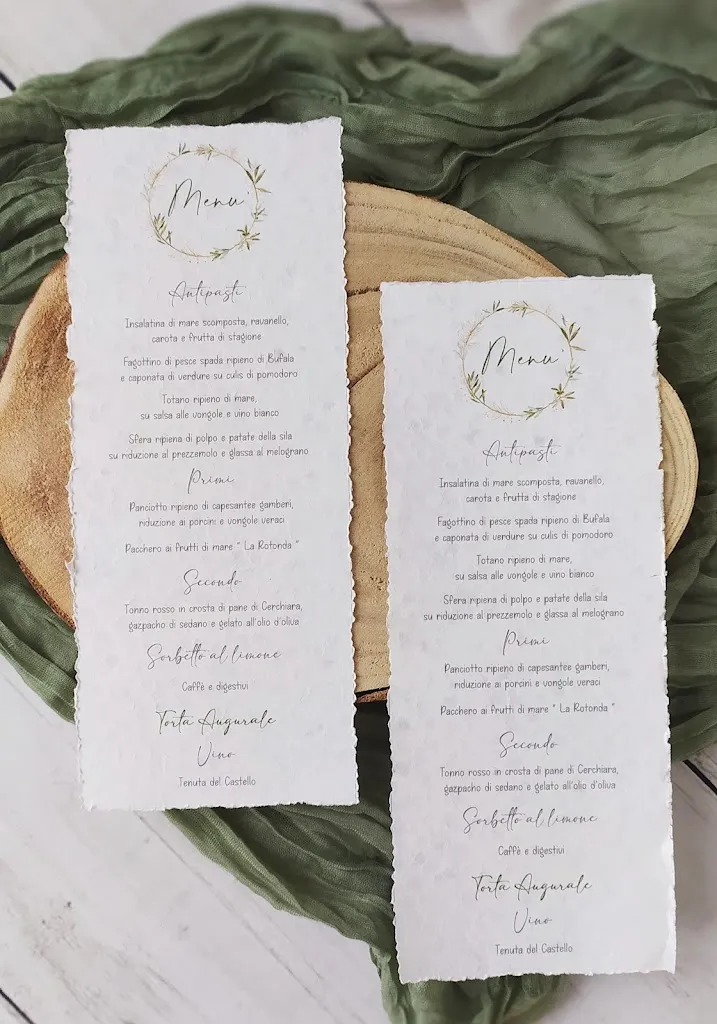 Menu
Antipasti
Insalatina di mare scomposta, ravanello,
carota e frutta di stagione
Fagottino di pesce spada ripieno di Bufala
e caponata di verdure su culis di pomodoro
Totano ripieno di mare,
su salsa alle vongole e vino bianco
Sfera ripiena di polpo e patate della sila
su riduzione al prezzemolo e glassa al melograno
Primi
Panciotto ripieno di capesantee gamberi,
riduzione ai porcini e vongole veraci
Pacchero ai frutti di mare " La Rotonda "
Secondo
Tonno rosso in crosta di pane di Cerchiara,
gazpacho di sedano e gelato all'olio d'oliva
Sorbetto al limone
Caffè e digestivi
Torta Augurale
Vino
Tenuta del Castello
Menu
Antipasti
Insalatina di mare scomposta, ravanello,
carota e frutta di stagione
Fagottino di pesce spada ripieno di Bufala
e caponata di verdure su culis di pomodoro
Totano ripieno di mare,
su salsa alle vongole e vino bianco
Sfera ripiena di polpo e patate della sila
su riduzione al prezzemolo e glassa al melograno
Primi
Panciotto ripieno di capesantee gamberi,
riduzione ai porcini e vongole veraci
Pacchero ai frutti di mare " La Rotonda "
Secondo
Tonno rosso in crosta di pane di Cerchiara,
gazpacho di sedano e gelato all'olio d'oliva
Sorbetto al limone
Caffè e digestivi
Torta Augurale
Vino
Tenuta del Castello